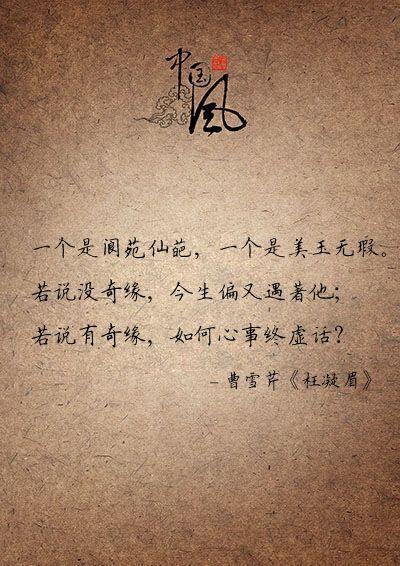 中国风
一个是阆苑仙葩，一个是美玉无瑕。
若说没奇缘，今生偏又遇著他；
若说有奇缘，如何心事终虚话？
– 曹雪芹《枉凝眉》